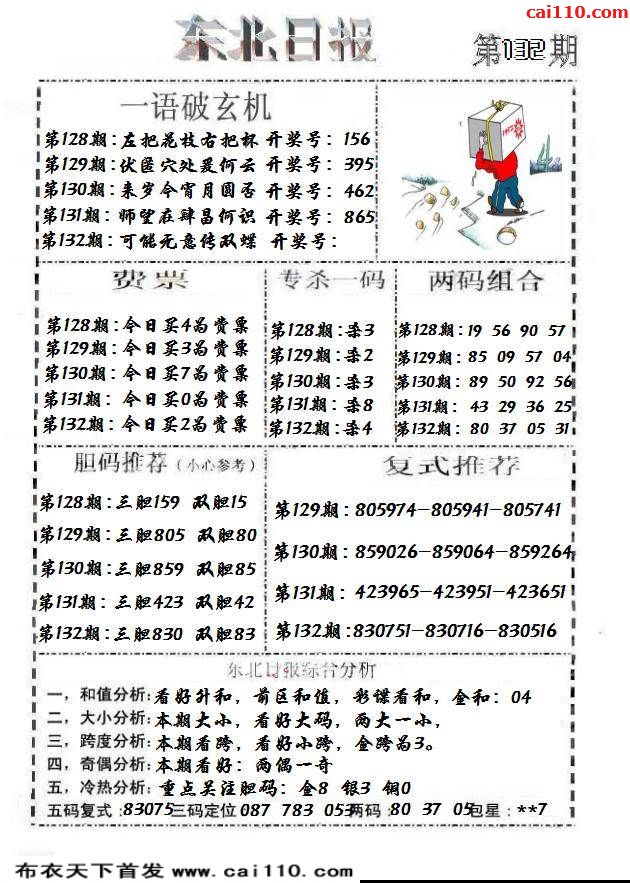 cai110.com
东北日报
第132期
一语破玄机
第128期:左把花枝右把杯 开奖号: 156
第129期:伏匿穴处爰何云 开奖号: 395
第130期:来岁今宵月圆否 开奖号: 462
第131期:师望在肆昌何识 开奖号: 865
第132期:可能无意传双蝶 开奖号:
费票
第128期:今日买4为费票
第129期:今日买3为费票
第130期:今日买7为费票
第131期:今日买0为费票
第132期:今日买2为费票
专杀一码
第128期:杀3
第129期:杀2
第130期:杀3
第131期:杀8
第132期:杀4
两码组合
第128期:19 56 90 57
第129期:85 09 57 04
第130期:89 50 92 56
第131期: 43 29 36 25
第132期: 80 37 05 31
胆码推荐(小心参考)
第128期:三胆159 双胆15
第129期:三胆805 双胆80
第130期:三胆859 双胆85
第131期:三胆423 双胆42
第132期:三胆830 双胆83
复式推荐
第129期:805974-805941-805741
第130期:859026-859064-859264
第131期: 423965-423951-423651
第132期: 830751-830716-830516
东北日报综合分析
一,和值分析:看好升和, 前区和值, 彩蝶看和, 金和: 04
二,大小分析:本期大小, 看好大码, 两大一小,
三,跨度分析:本期看跨, 看好小跨, 金跨为3。
四,奇偶分析:本期看好: 两偶一奇
五,冷热分析: 重点关注胆码: 金8 银3 铜0
五码复式:83075三码定位087 783 053两码:80 37 05包星:**7
布衣天下首发 www.cai110.com